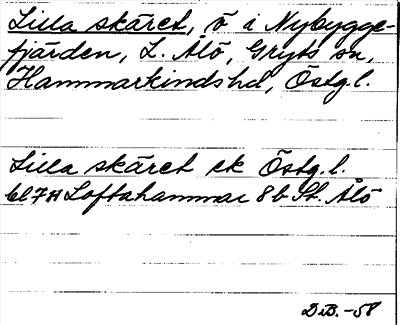 Lilla skäret, ö i Nybygge-
fjärden, L. Ålö, Gryts sn,
Hammarkinds hd, Östg.l.
Lilla skäret ek Östg.l.
bl 7H Loftahammar 8b St. Ålö
D.B. -58